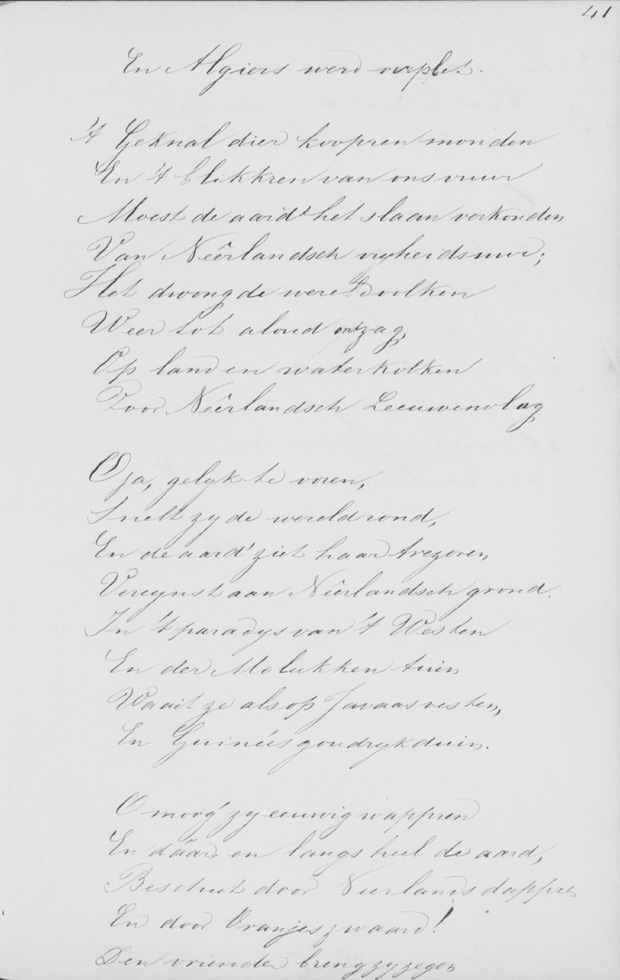 41
En Algiers werd verplet.
't Geknal dier koopren monden
En 't blikkren van ons vuur
Moest de aard' het slaan verkonden
Van Neêrlandsch vryheids uur;
Het dwong de wereldvolken
Weer tot aloud ontzag,
Op land en waterkolken
Voor Neêrlandsch Leeuwenvlag
O ja, gelyk te voren,
Snelt zy de wereld rond,
En de aard' ziet haar trezoren
Vereynst aan Neêrlandsch grond.
In 't paradys van 't Westen
En der Molukken tuin
Waait ze als op Javaas vesten,
En Guinéés goudryk duin.
O moog' zy eeuwig wappren
En dáár, en langs heel de aard,
Beschut door Neerlands dappre,
En door Oranjes zwaard!
Den vrienden breng zy zegen